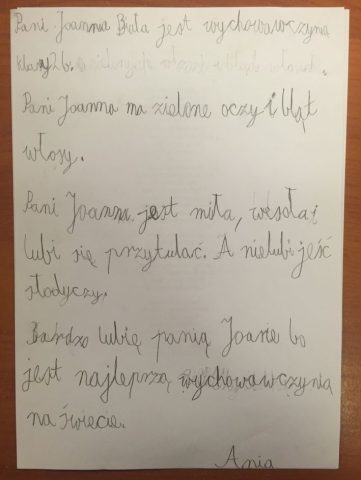 Pani Joanna Biała jest wychowawczynia
klasy 2b.
Pani Joanna ma zielone oczy i błąt
włosy.
Pani Joanna jest miła, wesoła i
lubi się przytulać. A nielubi jeść
słodyczy.
Bardzo lubię panią Joane bo
jest najleprzą wychowawczynia
na świecie.
Ania